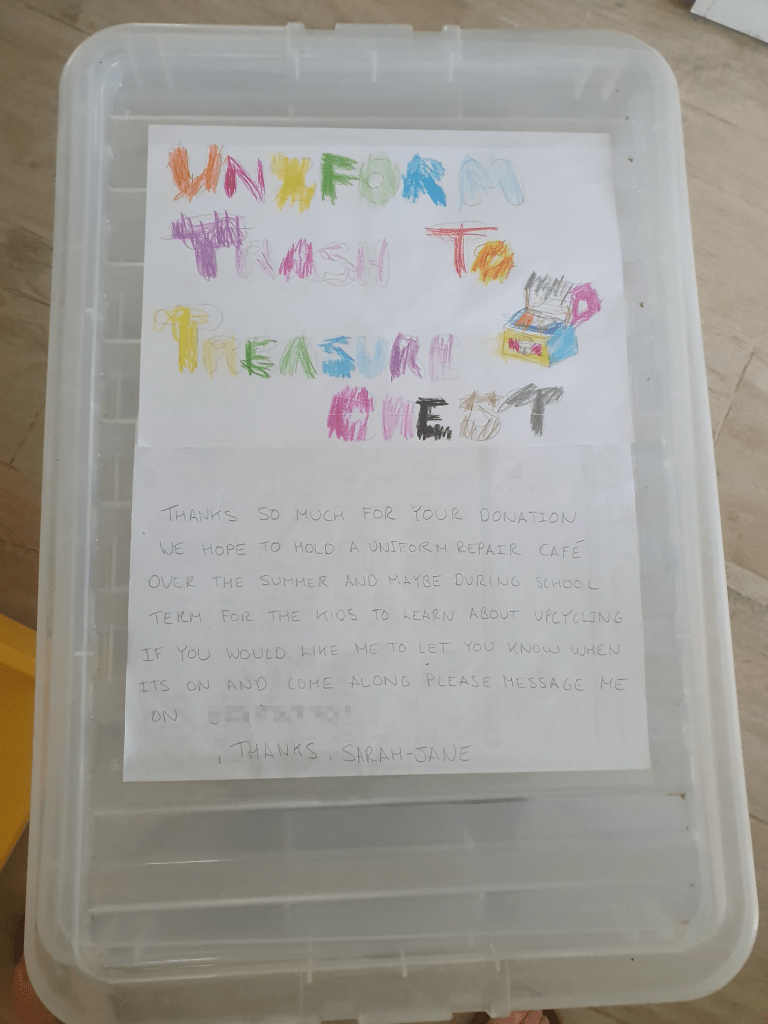 UNIFORM
TRASH TO
TREASURE
CHEST
THANKS SO MUCH FOR YOUR DONATION
WE HOPE TO HOLD A UNIFORM REPAIR CAFÉ
OVER THE SUMMER AND MAYBE DURING SCHOOL
TERM FOR THE KIDS TO LEARN ABOUT UPCYCLING
IF YOU WOULD LIKE ME TO LET YOU KNOW WHEN
ITS ON AND COME ALONG PLEASE MESSAGE ME
ON
THANKS, SARAH-JANE